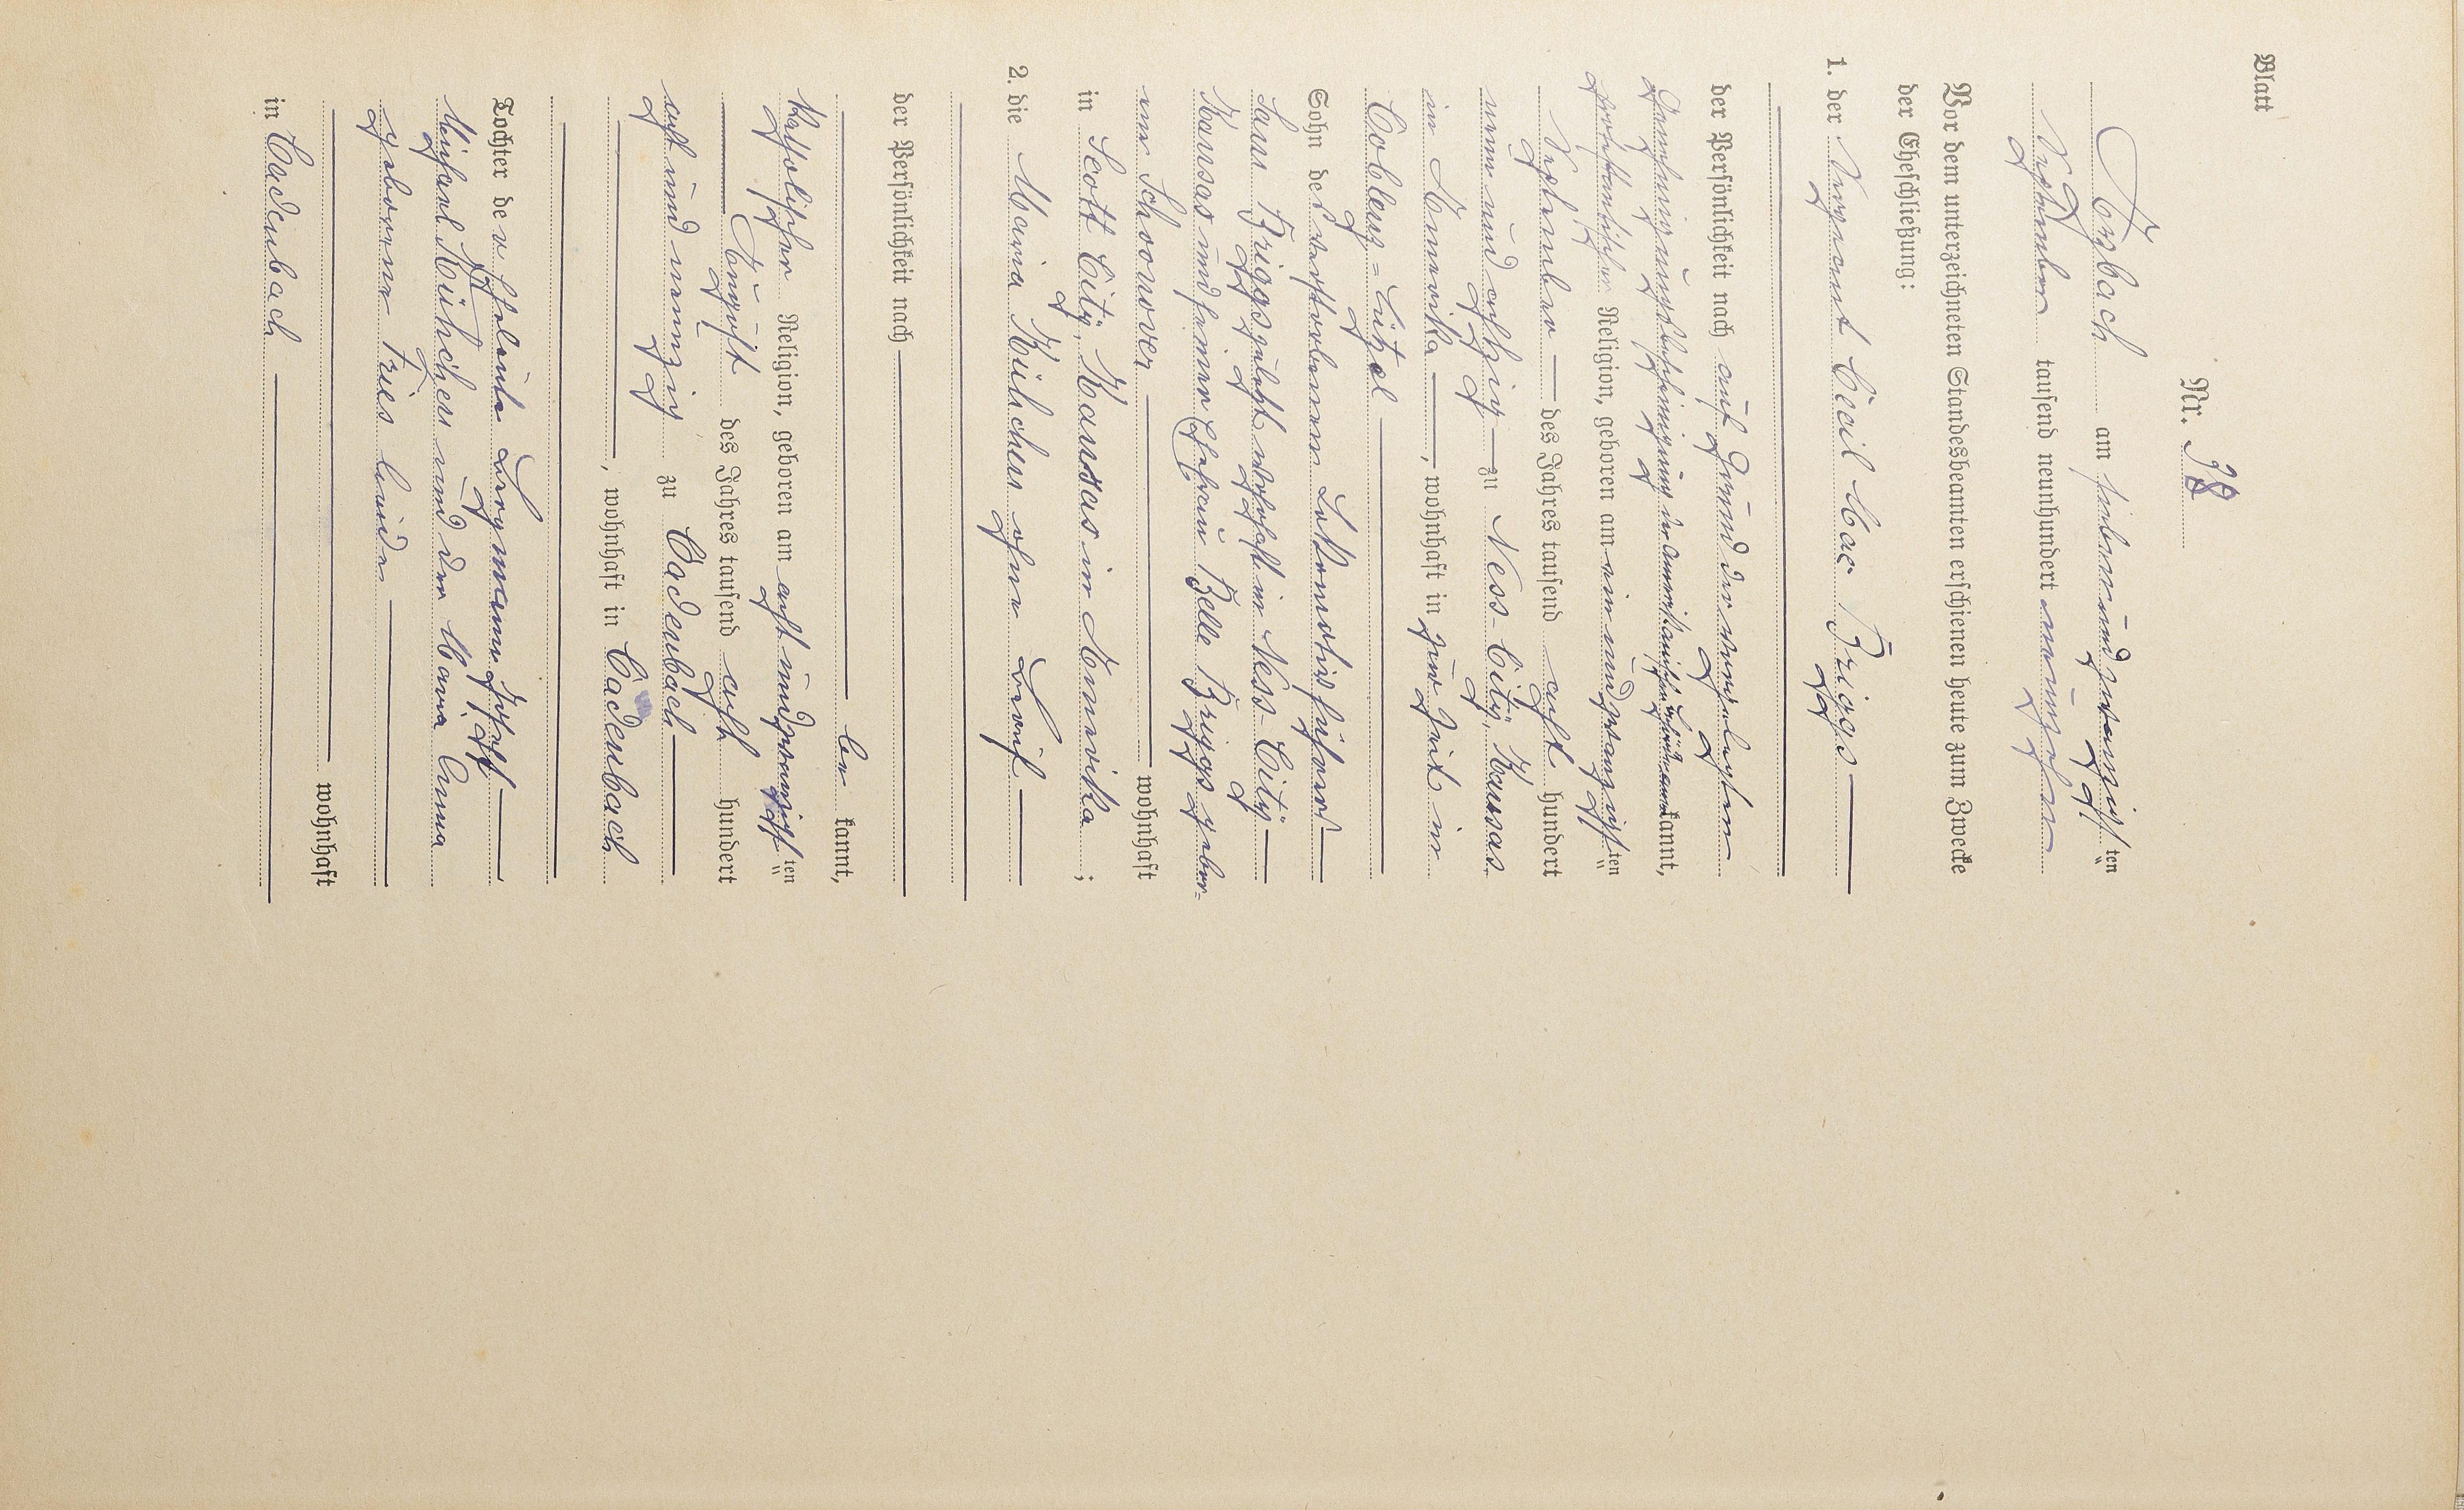 Blatt
Nr. 38
Arzbach am siebenundzwanzigsten
September tausend neunhundert neunzehn
Vor dem unterzeichneten Standesbeamten erschienen heute zum Zwecke
der Eheschließung:
1. der Sergeant Cecil Mac Briggs
der Persönlichkeit nach auf Grund der vorgelegten
Genehmigungsbescheinigung der amerikanischen Behörde anerkannt,
protestantischer Religion, geboren am einundzwanzigsten
September des Jahres tausend acht hundert
neunundachtzig zu Ness-City, Kansas
in Amerika, wohnhaft in zur Zeit in
Coblenz-Lützel
Sohn des verstorbenen Lokomotivführers
Briggs zuletzt wohnhaft in Ness-City
Kansas und seiner Ehefrau Belle Briggs gebor-
nen Schoonover wohnhaft
in Scott City, Kansas in Amerika;
2. die Maria Külchen ohne Beruf
der Persönlichkeit nach
be kannt,
katholischer Religion, geboren am achtundzwanzigsten
August des Jahres tausend acht hundert
achtundneunzig zu Cadenbach
, wohnhaft in Cadenbach
Tochter der Eheleute Bergmann Joseph
und der Maria Anna
geborene Fries beide
wohnhaft
in Cadenbach